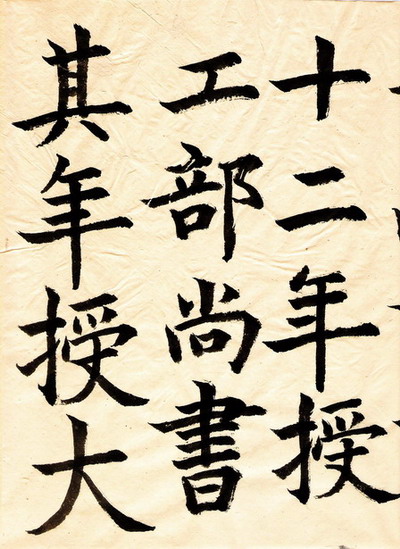 十二年授
工部尚書
其年授大